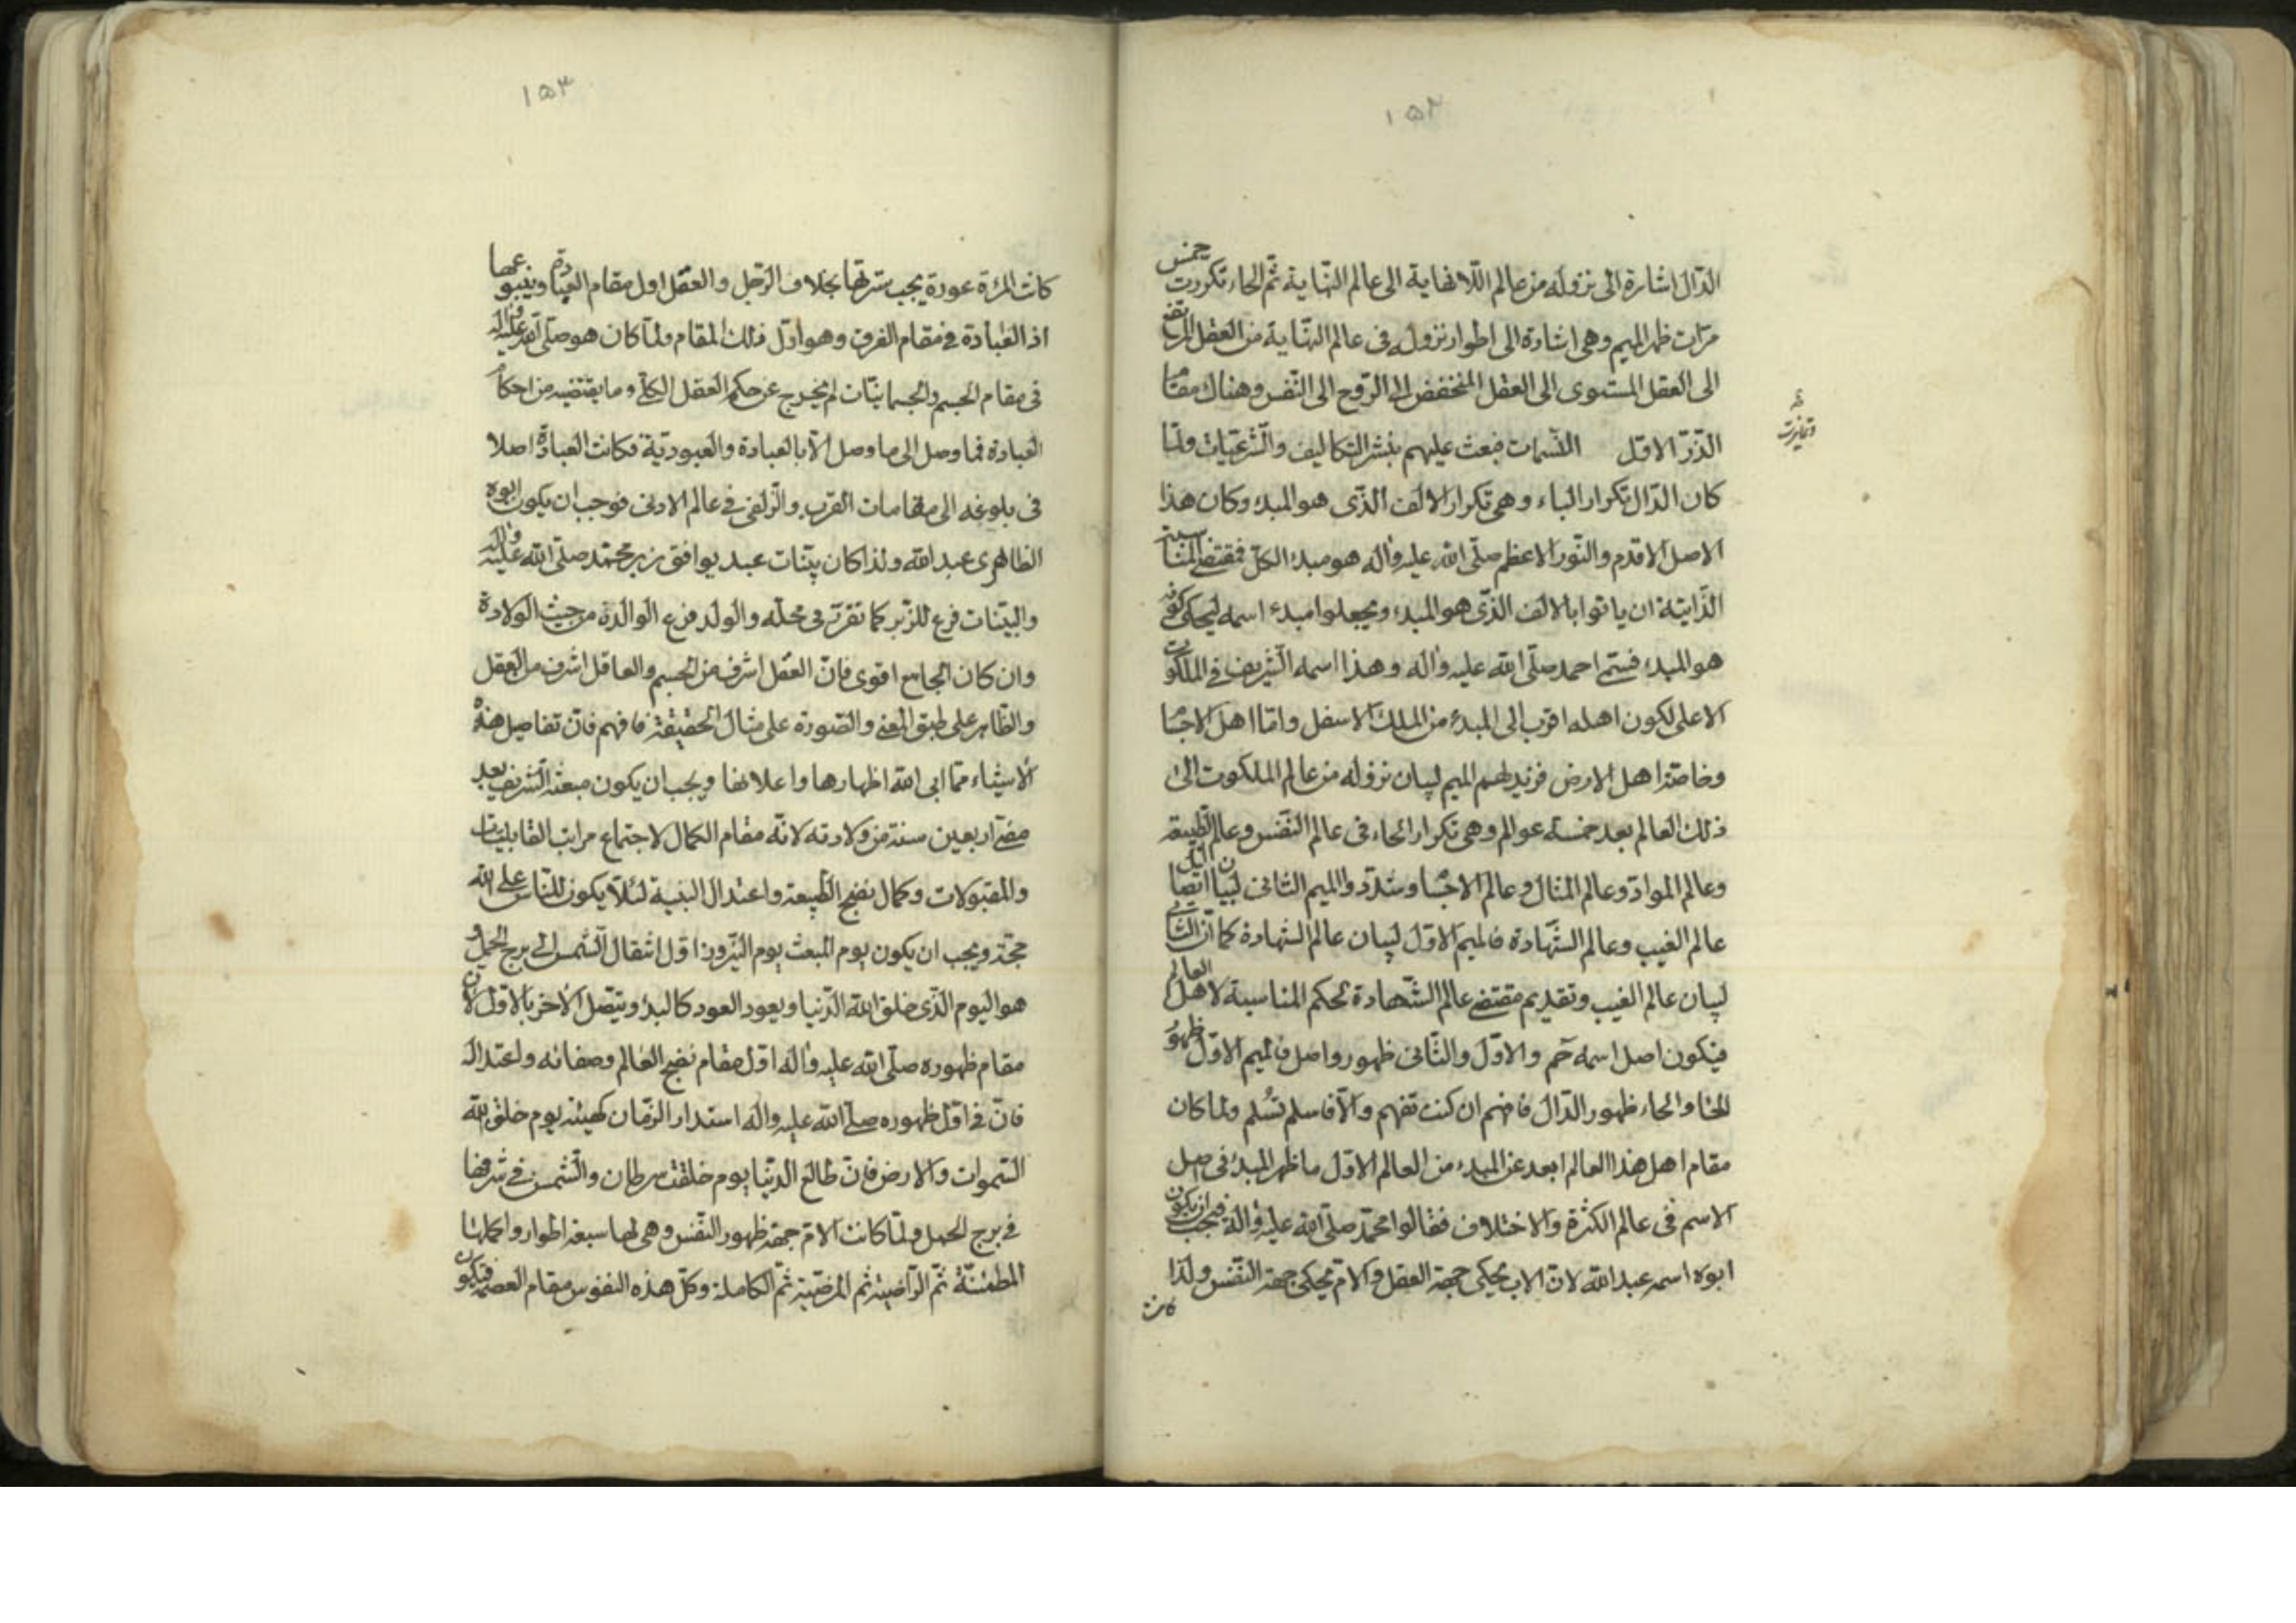 ١٥٢
الدّال اشارة الى نزوله من عالم اللانهاية الى عالم النهاية ثم الحاء تكررت خمس
مرّات ظهر الميم وهى اشارة الى اطوار نزوله فى عالم النهاية من العقل المرتفع
الى العقل المستوى الى العقل المنخفض الى الروح الى النفس وهناك مقام
الذرّ الاول النّسمات فبعث عليهم بنشر التكاليف والشرعيات ولمّا
كان الدّال تكرار الباء وهى تكرار الالف الذى هو المبدء وكان هذا
الاصل الاقدم والنّور الاعظم صلّى الله عليه وآله هو مبدء الكلّ فمقتضى المناسبة
الذّاتية ان ياتوا بالالف الذّى هو المبدء ويجعلوا مبدء اسمه ليحكى كونه
هو المبدء فسمّى احمد صلّى الله عليه وآله وهذا اسمه الشّريف فى الملكوت
الاعلى لكون اهله اقرب الى المبدء من الملك الاسفل وامّا اهل الاجسام
وخاصّة اهل الارض فزيد لهم الميم لبيان نزوله من عالم الملكوت الى
ذلك العالم بعد خمسة عوالم وهى تكرار الحاء فى عالم النّفس وعالم الطّبيعة
وعالم الموادّ وعالم المثال وعالم الاجسام وشدّدوا الميم الثانى لبيان اتّصال
عالم الغيب وعالم الشّهادة فالميم الاوّل لبيان عالم الشهادة كما انّ الثانى
لبيان عالم الغيب وتقديم مقتضى عالم الشّهادة لحكم المناسبة لاهل العالم
فيكون اصل اسمه حم والاوّل والثّانى ظهور واصل فالميم الاوّل ظهور
الخفا والحاء ظهور الدّال فافهم ان كنت تفهم والّا فاسلم تسلم ولما كان
مقام اهل هذا العالم ابعد عن المبدء من العالم الاوّل ما ظهر المبدء فى اصل
الاسم فى عالم الكثرة والاختلاف فقالوا محمّد صلّى الله عليه وآله فيجب ان يكون
ابوه اسمه عبدالله لانّ الاب يحكى جهة العقل والامّ يحكى جهة النّفس ولذا
كانت
١٥٣
كانت المرءة عورة يجب سترتها بخلاف الرّجل والعقل اول مقام العبادة وينبوعها
اذ العبادة فى مقام الفرق وهو اوّل ذلك المقام ولمّا كان هو صلى الله عليه وآله
فى مقام الجسم والجسمانيّات لم يخرج عن حكم العقل الكلّى وما يقتضيه من احكام
العبادة فما وصل الى ما وصل الّا بالعبادة والعبوديّة فكانت العبادة اصلا
فى بلوغه الى مقامات القرب والزّلفى فى عالم الادنى فوجب ان يكون ابوه
الظاهرى عبدالله ولذا كان بيّنات عبد يوافق زبر محمّد صلّى الله عليه وآله
والبيّنات فرع للزّبر كما تقرّر فى محلّه والولد فرع الوالدة من حيث الولادة
وان كان الجامع اقوى فانّ العقل اشرف من الجسم والعاقل اشرف من العقل
والظّاهر على طبق المعنى والصّورة على مثال الحقيقة فافهم فانّ تفاصيل هذه
الأشياء ممّا ابى الله اظهارها واعلانها ويجب ان يكون مبعثه الشّريف بعد
مضىّ اربعين سنة من ولادته لانّه مقام الكمال لاجتماع مراتب القابليّات
والمقبولات وكمال نضج الطّبيعة واعتدال البنية لئلّا يكون للنّاس على الله
حجّة ويجب ان يكون يوم المبعث يوم النّيروز اوّل انتقال الشّمس الى برج الحمل و
هو اليوم الذّى خلق الله الدّنيا ويعود العود كالبدء ويتّصل الآخر بالاوّل لانّ
مقام ظهوره صلّى الله عليه وآله اوّل مقام نضج العالم وصفائه واعتداله
فانّ فى اوّل ظهوره صلّى الله عليه وآله استدار الزمان كهيئته يوم خلق الله
السّموات والارض فانّ طالع الدّنيا يوم خلقت سرطان والشّمس فى شرفها
فى برج الحمل ولمّا كانت الامّ جهة ظهور النّفس وهى لها سبعة اطوار واكملها
المطمئنّة ثمّ الرّاضية ثم المرضيّة ثمّ الكاملة وكلّ هذه النفوس مقام العصمة فيكون